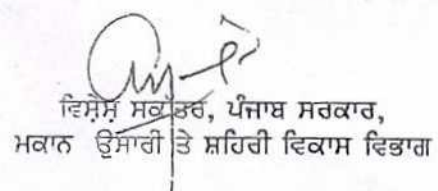 ਵਿਸ਼ੇਸ਼ ਸਕੱਤਰ, ਪੰਜਾਬ ਸਰਕਾਰ,
ਮਕਾਨ ਉਸਾਰੀ ਤੇ ਸ਼ਹਿਰੀ ਵਿਕਾਸ ਵਿਭਾਗ